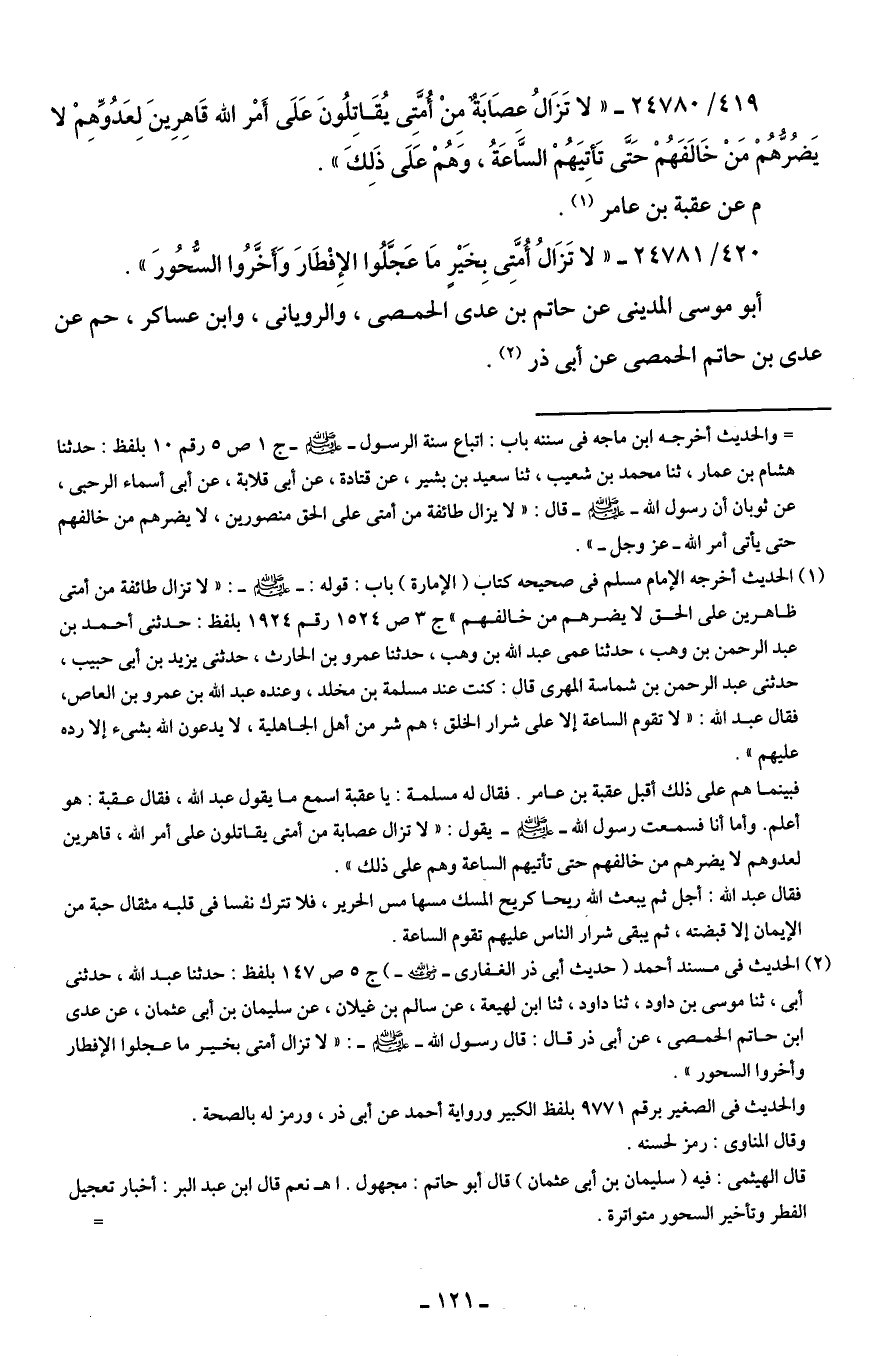 ٤١٩/ ٢٤٧٨٠ ـ « لا تَزَالُ عِصَابَةٌ مِنْ أُمَّتِى يُقَـاتِلُونَ عَلَى أَمْرِ الله قَاهِرِينَ لِعَدُوِّهِمْ لا
يَضُرُّهُمْ مَنْ خَالَفَهُمْ حَتَّى تَأْتِيَهُمْ السَّاعَةُ ، وَهُمْ عَلَى ذَلِكَ » .
م عن عقبة بن عامر (١) .
٤٢٠/ ٢٤٧٨١ ـ « لا تَزَالُ أُمَّتِى بِخَيْرٍ مَا عَجَّلُوا الإِفْطَارَ وَأَخَّرُوا السُّحُورَ » .
أبو موسى المدينى عن حاتم بن عدى الحمـصى ، والرويانى ، وابن عساكر ، حم عن
عدى بن حاتم الحمصى عن أبى ذر (٢) .
= والحديث أخرجـه ابن ماجه فى سننه باب : اتباع سنة الرسول ـ ﷺ ـ ج ١ ص ٥ رقم ١٠ بلفظ : حدثنا
هشام بن عمار ، ثنا محمد بن شعيب ، ثنا سعيد بن بشير ، عن قتادة ، عن أبى قلابة ، عن أبى أسماء الرحبى ،
عن ثوبان أن رسول الله ـ ﷺ ـ قال : « لا يزال طائفة من أمتى على الحق منصورين ، لا يضرهم من خالفهم
حتى يأتى أمر الله ـ عز وجل ـ » .
(١) الحديث أخرجه الإمام مسلم فى صحيحه كتاب ( الإمارة ) باب : قوله : ـ ﷺ ـ : « لا تزال طائفة من أمتى
ظـاهـرين على الحـق لا يضـرهـم من خـالفـهـم » ج ٣ ص ١٥٢٤ رقـم ١٩٢٤ بلفظ : حـدثنى أحـمـد بن
عبد الرحمن بن وهب ، حدثنا عمى عبد الله بن وهب ، حدثنا عمرو بن الحارث ، حدثنى يزيد بن أبى حبيب ،
حدثنى عبد الرحمن بن شماسة المهرى قال : كنت عند مسلمة بن مخلد ، وعنده عبد الله بن عمرو بن العاص،
فقال عبـد الله : « لا تقوم الساعة إلا على شرار الخلق ؛ هم شر من أهل الجـاهلية ، لا يدعون الله بشىء إلا رده
عليهم » .
فبينمـا هم على ذلك أقبل عقبة بن عـامر . فقال له مسلمـة : يا عقبة اسمع مـا يقول عبد الله ، فقال عـقبة : هو
أعلم. وأما أنا فسمـعت رسول الله ـ ﷺ ـ يقول : « لا تزال عصابة من أمتى يقـاتلون على أمر الله ، قاهرين
لعدوهم لا يضرهم من خالفهم حتى تأتيهم الساعة وهم على ذلك » .
فقال عبد الله : أجل ثم يبعث الله ريحـا كريح المسك مسها مس الحرير ، فلا تترك نفسا فى قلبـه مثقال حبة من
الإيمان إلا قبضته ، ثم يبقى شرار الناس عليهم تقوم الساعة .
(٢) الحديث فى مـسند أحمد ( حديث أبى ذر الغـفارى ـ رضي الله عنه ـ ) ج ٥ ص ١٤٧ بلفظ : حدثنا عبـد الله ، حدثنى
أبى ، ثنا موسى بن داود ، ثنا داود ، ثنا ابن لهيعة ، عن سالم بن غيلان ، عن سليمان بن أبى عثمان ، عن عدى
ابن حـاتم الحمـصـى ، عن أبى ذر قـال : قال رسـول الله ـ ﷺ ـ : « لا تزال أمتى بخـيـر ما عـجلوا الإفطار
وأخروا السحور » .
والحديث فى الصغير برقم ٩٧٧١ بلفظ الكبير ورواية أحمد عن أبى ذر ، ورمز له بالصحة .
وقال المناوى : رمز لحسنه .
قال الهيثمى : فيه ( سليمان بن أبى عثمان ) قال أبو حاتم : مجهول . ا هـ نعم قال ابن عبد البر : أخبار تعجيل
الفطر وتأخير السحور متواترة .
=
ـ ١٢١ ـ